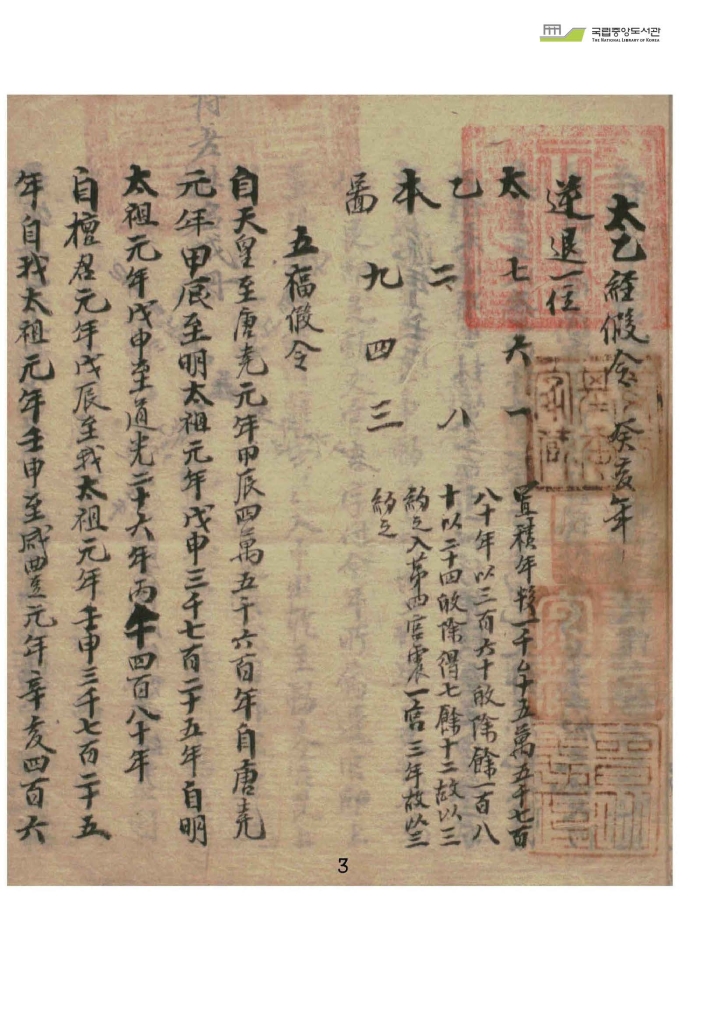 국립중앙도서관
THE NATIONAL LIBRARY OF KOREA
太乙經假令 癸亥年
逆退一位
太 七 六 一
乙 二 八
本
圖 九 四 三
置積年 一千 十五萬五千七百
八十年以三百六十 除餘一百八
十以二十四 除得七餘十二故以三
約之入第四宮震一宮三年故以三
約之
五福假令
自天皇至唐堯元年甲辰四萬五千六百年自唐堯
元年甲辰至明太祖元年戊申三千七百二十五年自明
太祖元年戊申至道光二十六年丙午四百八十年
自檀君元年戊辰至我太祖元年壬申三千七百二十五
年自我太祖元年壬申至咸豊元年辛亥四百六
3